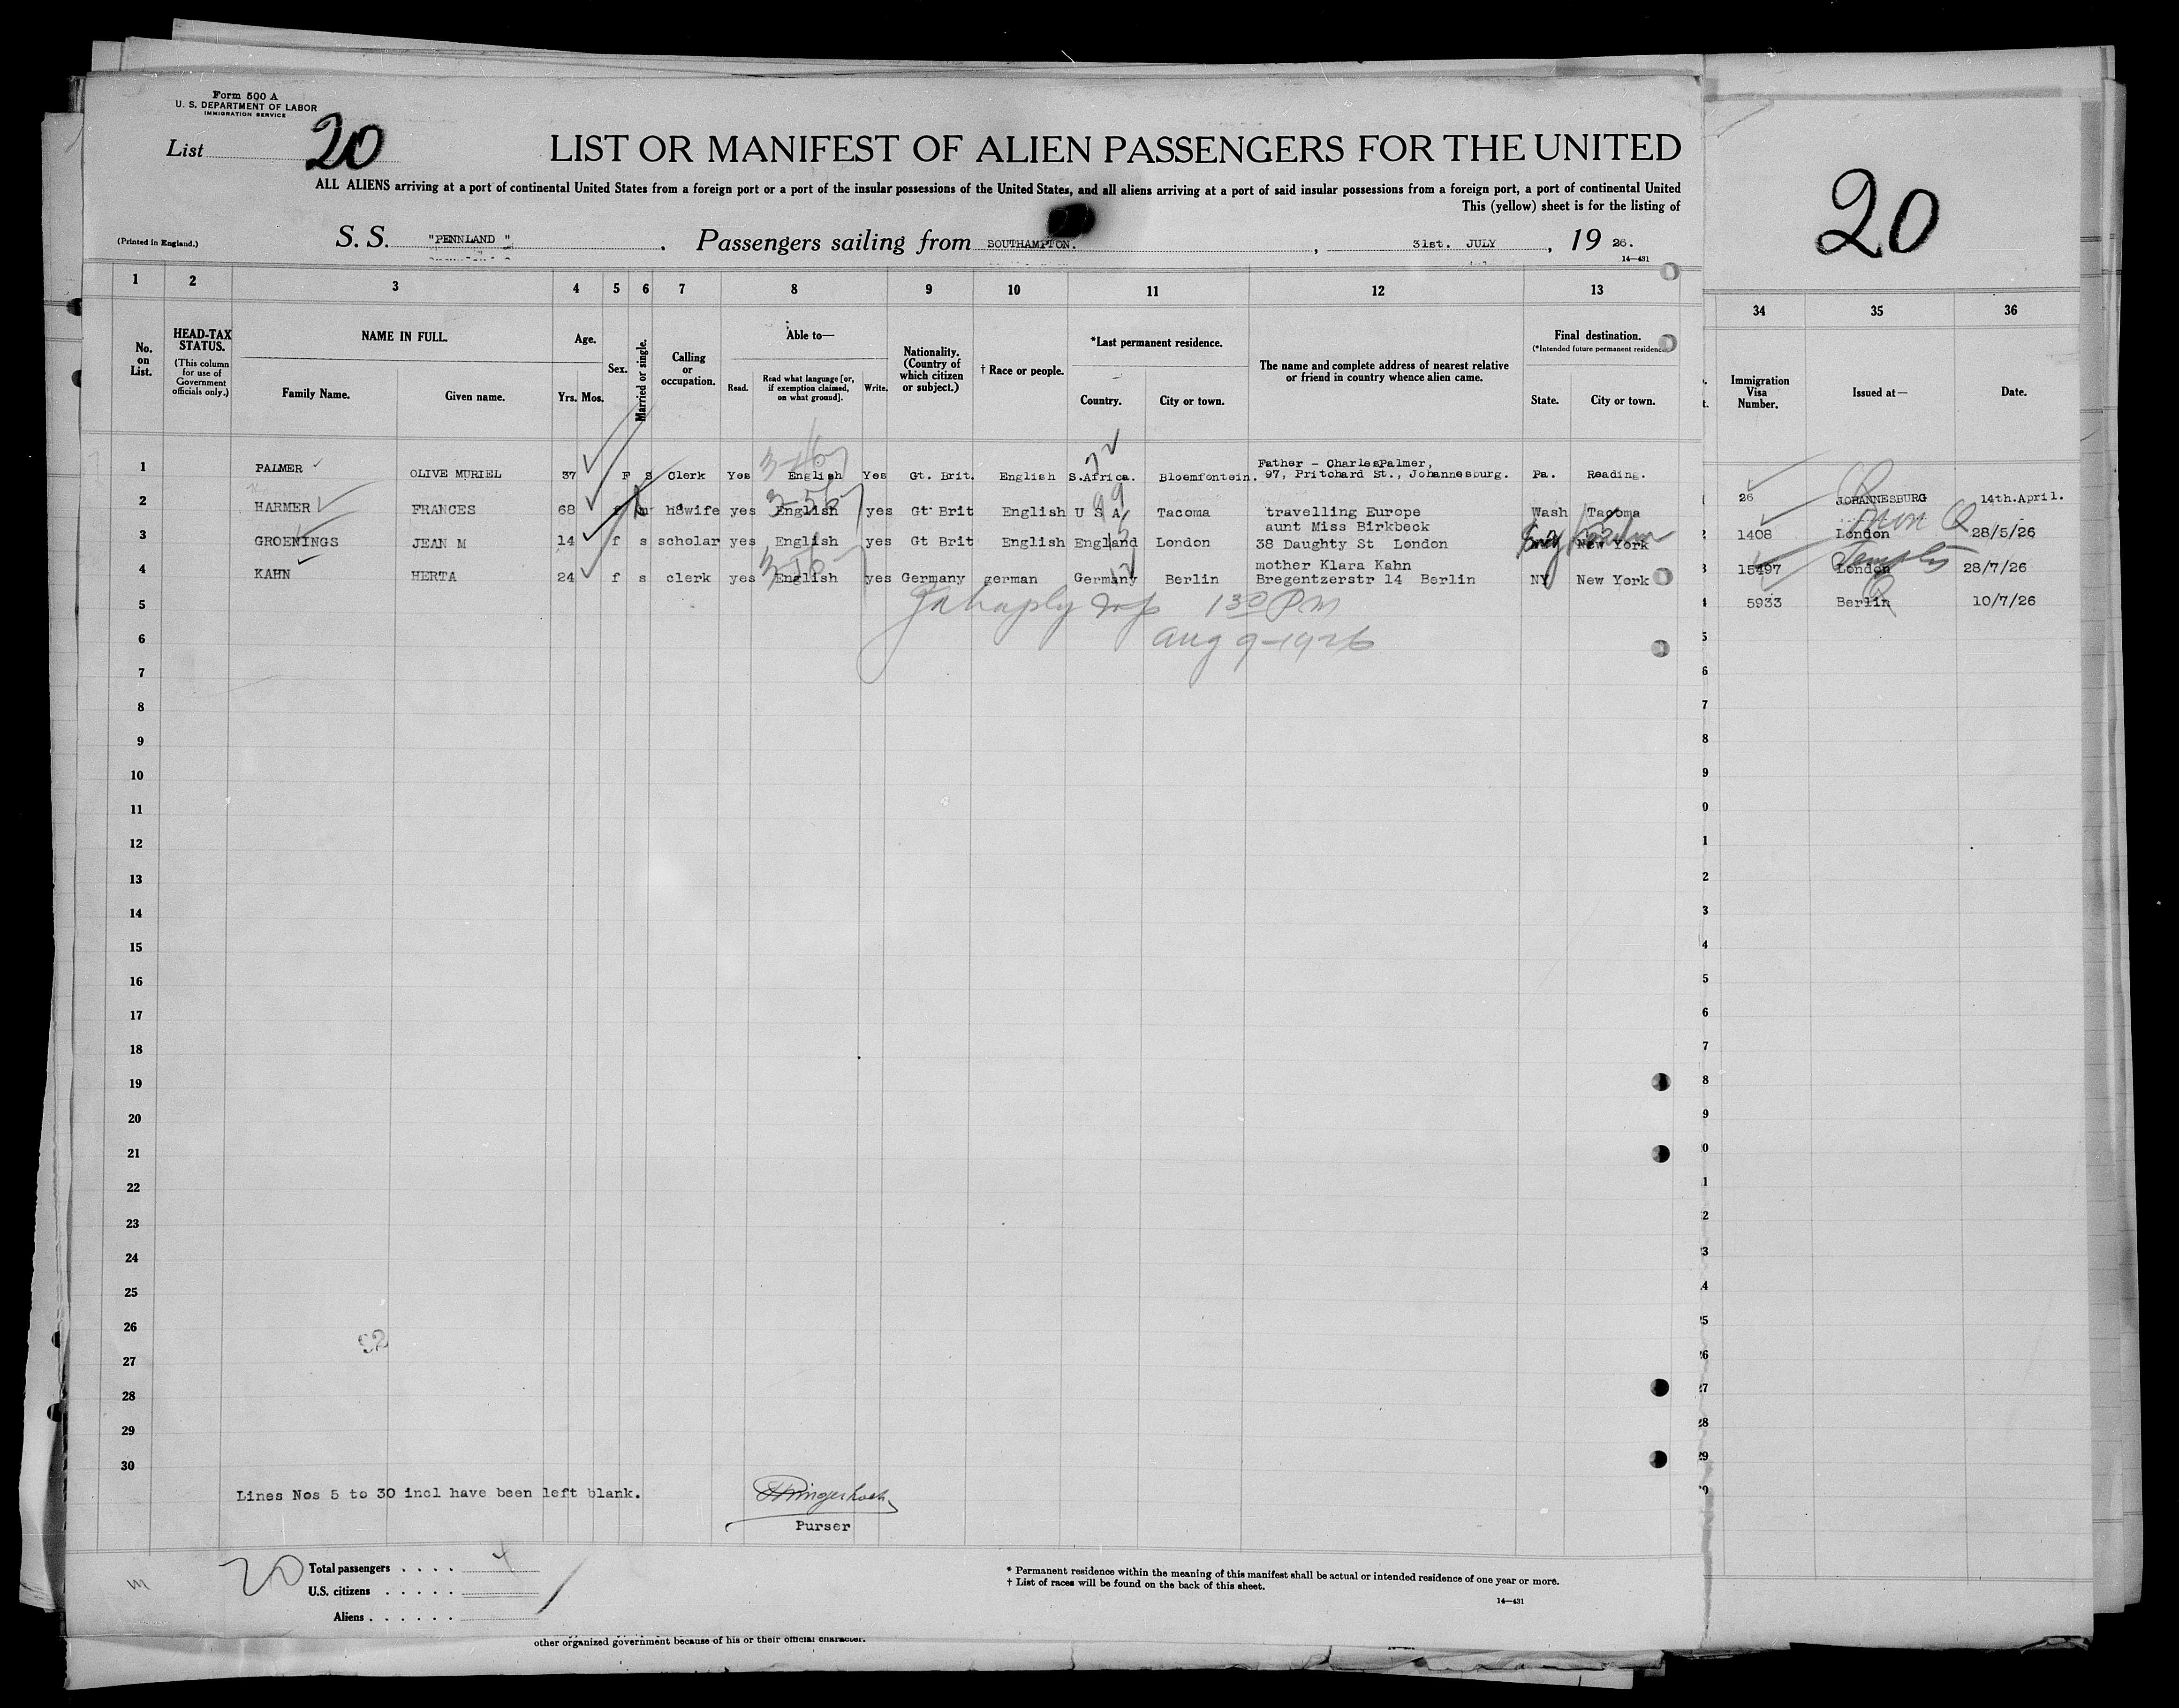 Form 500 A
U. S. DEPARTMENT OF LABOR
IMMIGRATION SERVICE
List 20
LIST OR MANIFEST OF ALIEN PASSENGERS FOR THE UNITED
ALL ALIENS arriving at a port of continental United States from a foreign port or a port of the insular possessions of the United States, and all aliens arriving at a port of said insular possessions from a foreign port, a port of continental United
This (yellow) sheet is for the listing of
(Printed in England.)
S. S. "PENNLAND ". Passengers sailing from SOUTHAMPTON. , 31st. JULY , 19 26.
14—431
20
1 2 3 4 5 6 7 8 9 10 11 12 13 34 35 36
No. on List.
HEAD-TAX STATUS.
(This column for use of Government officials only.)
NAME IN FULL.
Family Name. Given name.
Age.
Yrs. Mos.
Sex.
Married or single.
Calling or occupation.
Able to—
Read. Read what language [or, if exemption claimed, on what ground]. Write.
Nationality. (Country of which citizen or subject.)
† Race or people.
*Last permanent residence.
Country. City or town.
The name and complete address of nearest relative or friend in country whence alien came.
Final destination.
(*Intended future permanent residence
State. City or town.
Immigration Visa Number.
Issued at—
Date.
1 PALMER OLIVE MURIEL 37 F S Clerk Yes English Yes Gt. Brit. English S.Africa. Bloemfontein. Father - CharlesPalmer, 97, Pritchard St., Johannesburg. Pa. Reading. 26 JOHANNESBURG 14th.April.
2 HARMER FRANCES 68 f m hdwife yes English yes Gt Brit English U S A Tacoma travelling Europe Wash Tacoma 1408 London 28/5/26
3 GROENINGS JEAN M 14 f s scholar yes English yes Gt Brit English England London aunt Miss Birkbeck 38 Daughty St London New York 15497 London 28/7/26
4 KAHN HERTA 24 f s clerk yes English yes Germany german Germany Berlin mother Klara Kahn Bregentzerstr 14 Berlin NY New York 5933 Berlin 10/7/26
5 1 30 PM
6 Aug 9-1926
7
8
9
10
11
12
13
14
15
16
17
18
19
20
21
22
23
24
25
26
27
28
29
30
92
Lines Nos 5 to 30 incl have been left blank.
Purser
20
Total passengers . . . . 4
U.S. citizens . . . . .
Aliens . . . . . .
* Permanent residence within the meaning of this manifest shall be actual or intended residence of one year or more.
† List of races will be found on the back of this sheet.
14—431
other organized government because of his or their official character.